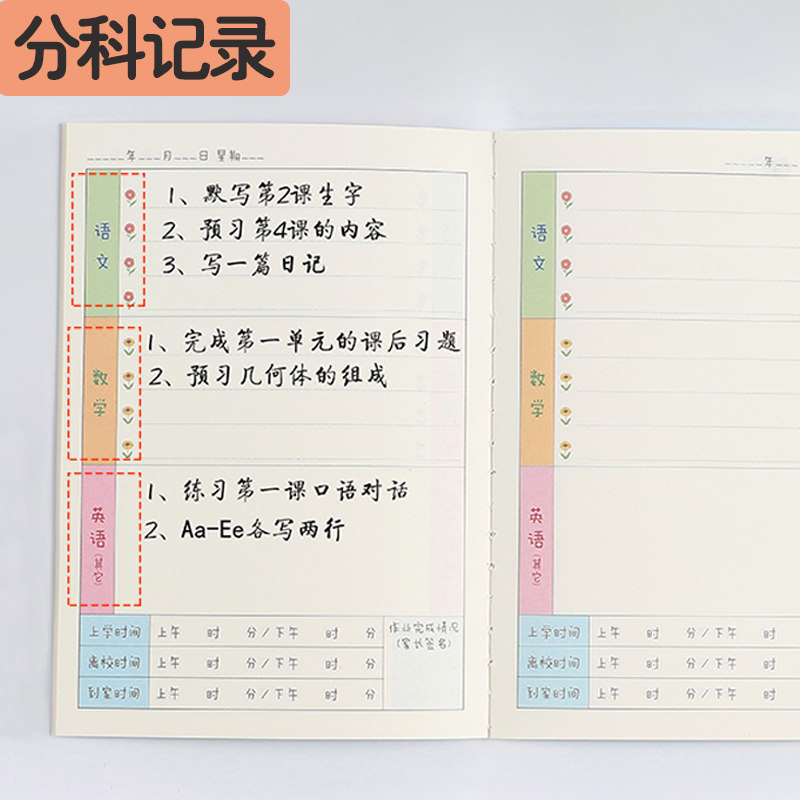 分科记录
_____年___月___日 星期___
语文
1、默写第2课生字
2、预习第4课的内容
3、写一篇日记
数学
1、完成第一单元的课后习题
2、预习几何体的组成
英语(其它)
1、练习第一课口语对话
2、Aa-Ee各写两行
上学时间 上午 时 分/下午 时 分
离校时间 上午 时 分/下午 时 分
到家时间 上午 时 分/下午 时 分
作业完成情况
(家长签名)
_____年__
语文
数学
英语(其它)
上学时间 上午 时 分/下午 时
离校时间 上午 时 分/下午 时
到家时间 上午 时 分/下午 时